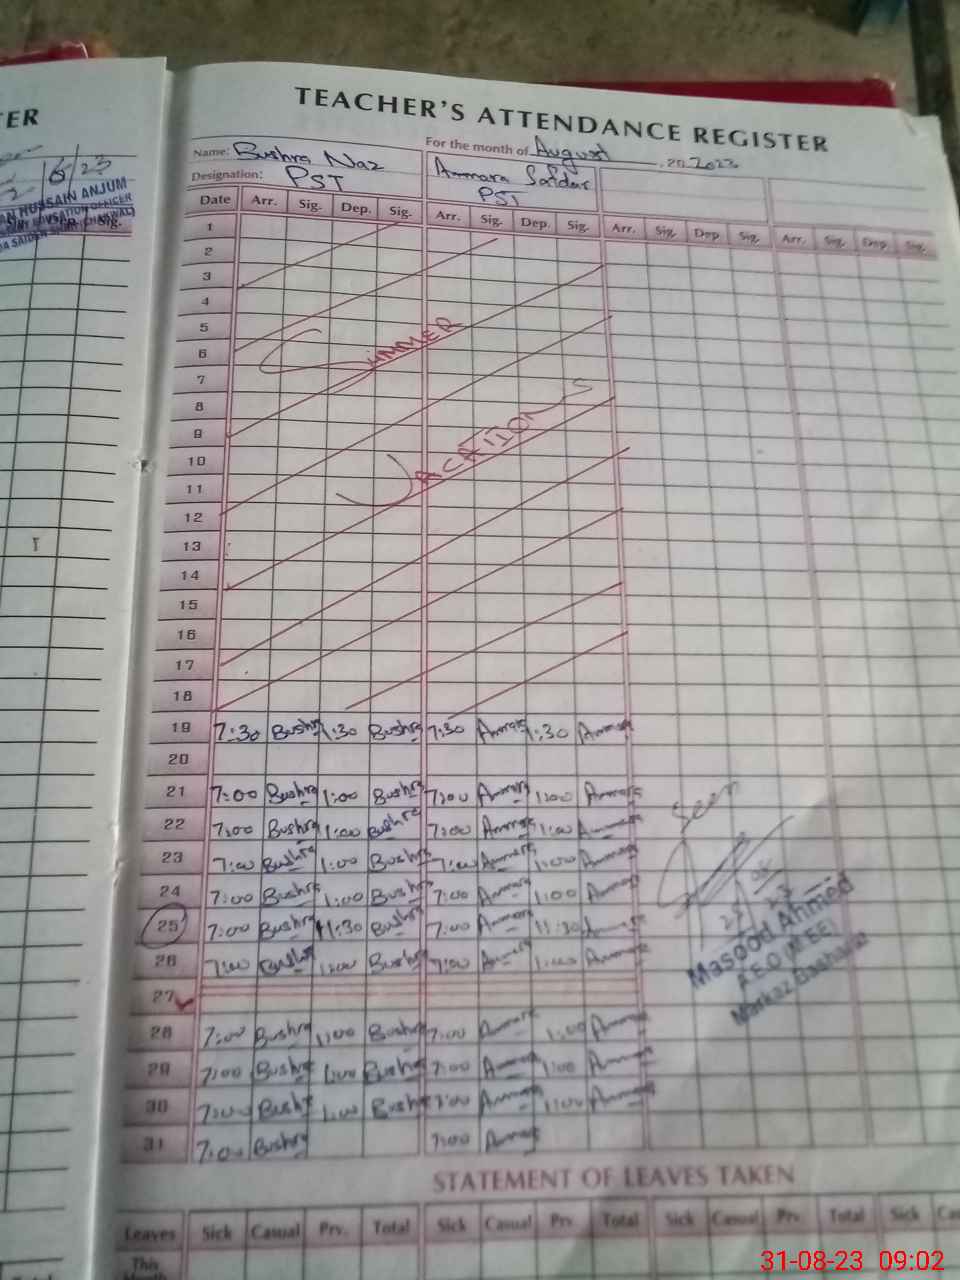 TER
6/23
HUSSAIN ANJUM
Sig.
TEACHER'S ATTENDANCE REGISTER
Name: Bushra Naz
For the month of August 2023
Designation: PST
Ammara Safdar
PST
Date Arr. Sig. Dep. Sig. Arr. Sig. Dep. Sig. Arr. Sig. Dep. Sig. Arr. Sig. Dep. Sig.
1
2
3
4
5
6
7
8
9
10
11
12
13
14
15
16
17
18
SUMMER
VACATIONS
19 7:30 Bushra 1:30 Bushra 7:30 Ammara 1:30 Ammara
20
21 7:00 Bushra 1:00 Bushra 7:00 Ammara 1:00 Ammara
22 7:00 Bushra 1:00 Bushra 7:00 Ammara 1:00 Ammara
23 7:00 Bushra 1:00 Bushra 7:00 Ammara 1:00 Ammara
24 7:00 Bushra 1:00 Bushra 7:00 Ammara 1:00 Ammara
25 7:00 Bushra 11:30 Bushra 7:00 Ammara 11:30 Ammara
26 7:00 Bushra 1:00 Bushra 7:00 Ammara 1:00 Ammara
27
28 7:00 Bushra 1:00 Bushra 7:00 Ammara 1:00 Ammara
29 7:00 Bushra 1:00 Bushra 7:00 Ammara 1:00 Ammara
30 7:00 Bushra 1:00 Bushra 7:00 Ammara 1:00 Ammara
31 7:00 Bushra 7:00 Ammara
Seen
Masood Ahmed
A.E.O (M-EE)
Markaz
STATEMENT OF LEAVES TAKEN
Leaves Sick Casual Prv. Total Sick Casual Prv. Total Sick Casual Prv. Total Sick
This
Month
31-08-23 09:02